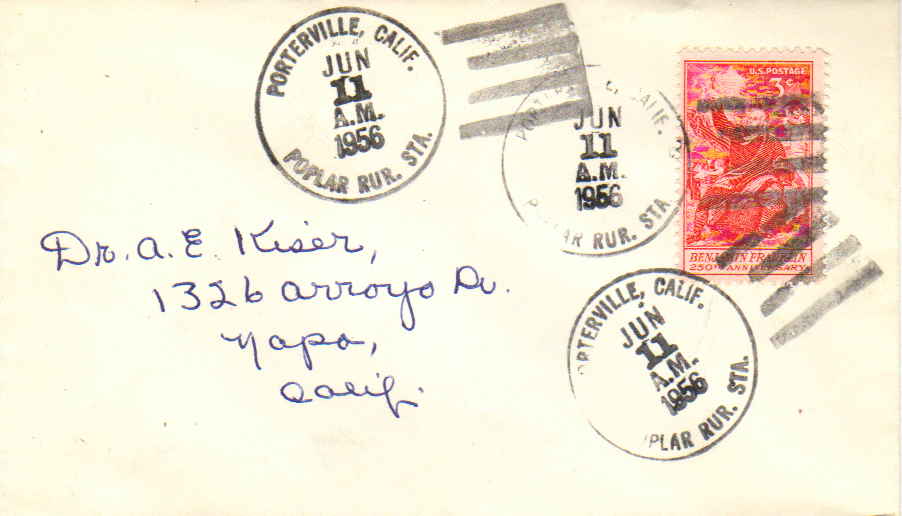 PORTERVILLE, CALIF.
JUN
11
A.M.
1956
POPLAR RUR. STA.
JUN
11
A.M.
1956
RUR. STA.
U.S. POSTAGE
3¢
BENJAMIN FRANKLIN
250TH ANNIVERSARY
Dr. A. E. Kiser,
1326 Arroyo Dr.
Napa,
Calif.
PORTERVILLE, CALIF.
JUN
11
A.M.
1956
POPLAR RUR. STA.